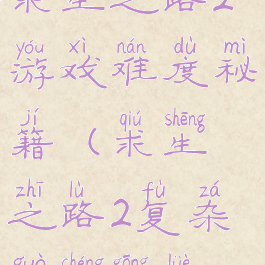 求生之路2
yóu xì nán dù mì
游戏难度秘
jí qiú shēng
籍（求生
zhī lù fù zá
之路2复杂
guò chéng gōng lüè